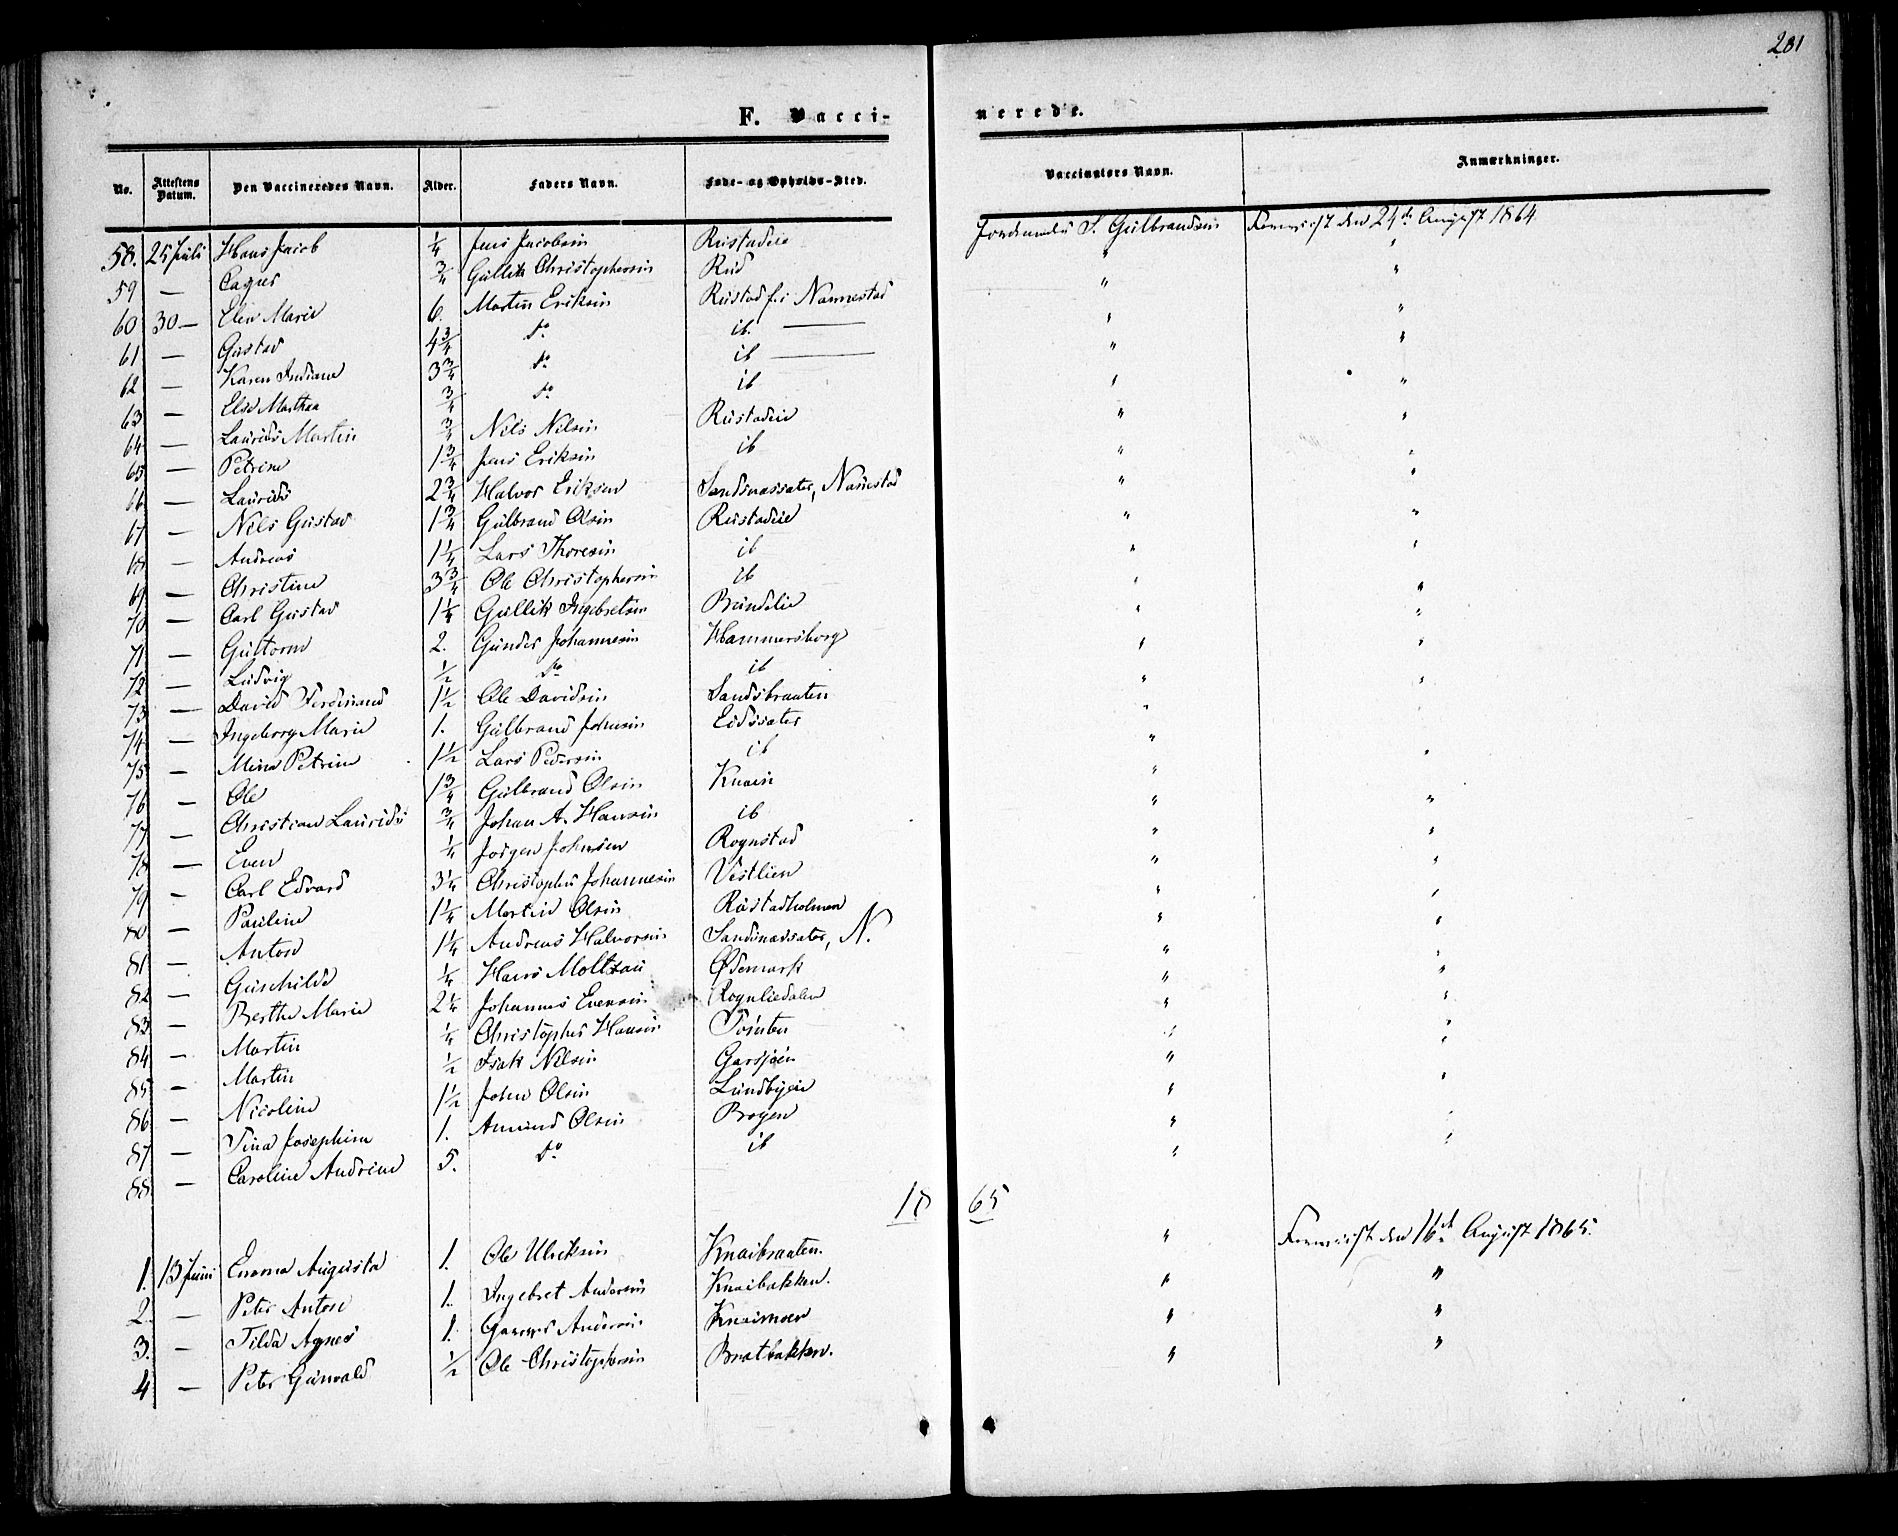 281
F. Vacci-nerede.
No. Attestens Datum. Den Vaccineredes Navn. Alder. Faders Navn. Føde- og Opholds-Sted. Vaccinatørs Navn. Anmærkninger.
58. 25 Juli Hans Jacob 1/4 Jens Jacobsen Rustadeie S. Gulbrandsen Fremvist den 24de August 1864
59 — 3/4 Gullik Christophersen Rud " "
60 30 — Elen Marie 6. Martin Eriksen Rustad f. i Nannestad " "
61 — Gustav 4 3/4 do ib. — " "
62 — Karen Indiane 3 3/4 do ib — " "
63 — Else Marthea 3/4 do ib " "
64 — Laurids Martin 3/4 Nils Nilsen Rustadeie " "
65 — Petrine 1 3/4 Jens Eriksen ib " "
66 — Laurids 2 3/4 Halvor Eriksen Sandsnæssæter, Nannestad " "
67 — Nils Gustav 1 3/4 Gulbrand Olsen Rustadeie " "
68 — Andreas 1 1/4 Lars Thoresen ib " "
69 — Christine 3 3/4 Ole Christophersen ib " "
70 — Carl Gustav 1 1/4 Gullik Ingebretsen " "
71 — Guttorm 2. Gunder Johannesen Hammersborg " "
72 — Ludvig 1/2 do ib " "
73 — David Ferdinand 1 1/2 Ole Davidsen Sandsbraaten " "
74 — Ingeborg Marie 1. Gulbrand Johnsen Eidssæter " "
75 — Mina Petrine 1 1/2 Lars Pedersen ib " "
76 — Ole 1 3/4 Gulbrand Olsen Knaien " "
77 — Christian Laurids 3/4 Johan A. Hansen ib " "
78 — Even 1/4 Jørgen Johnsen Rognstad " "
79 — Carl Edvard 3 1/4 Christopher Johannesen Vestlien " "
80 — Pauline 1 1/4 Martin Olsen Rustadholmen " "
81 — Anton 1 1/4 Andreas Halvorsen Sandsnæssæter, N. " "
82 — Gunhilde 1/4 Hans Moltzau Ødemark " "
83 — Berthe Marie 2 1/4 Johannes Evensen Rognliedalen " "
84 — Martin 1/4 Christopher Hansen Tømten " "
85 — Martin 1/2 Isak Nilsen Garsjøen " "
86 — Nicoline 1 1/2 John Olsen Lundbyeie " "
87 — Tina Josephine 1. Amund Olsen Brogen " "
88. — Caroline Andrine 5. do ib " "
1865
1. 13 Juni Emma Augusta 1. Ole Ulriksen Knaibraaten. " Fremvist den 16de August 1865.
2. — Peter Anton 1. Ingebret Andersen Knaibakken. " "
3. — Tilda Agnes 1. Andersen Knaimoen " "
4 — Peter Gunvald 1/2 Ole Christophersen Bratbakken. " "